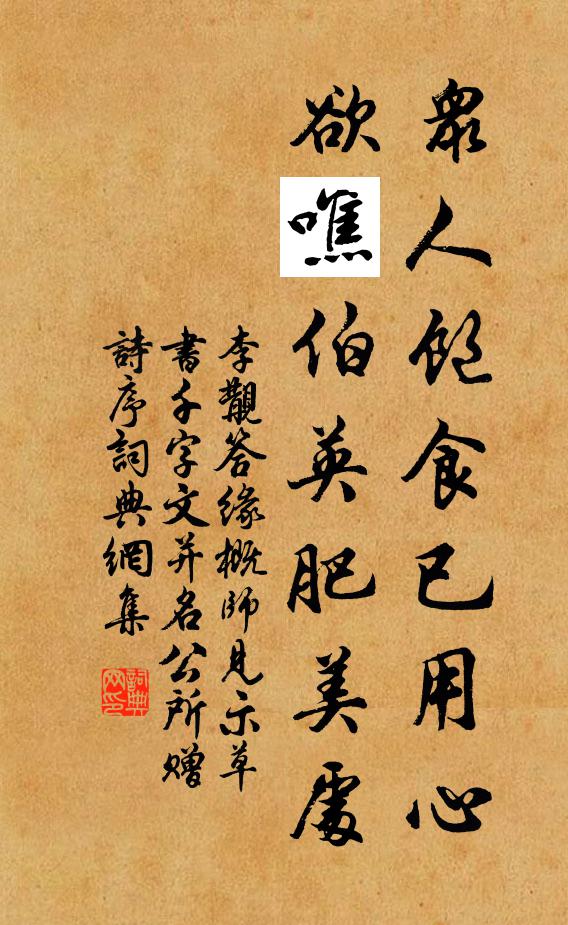 衆人飽食已用心
欲噍伯英肥美處
李覯答緣概師見示草
書千字文并名公所贈
詩序詞典網集
詞典网印